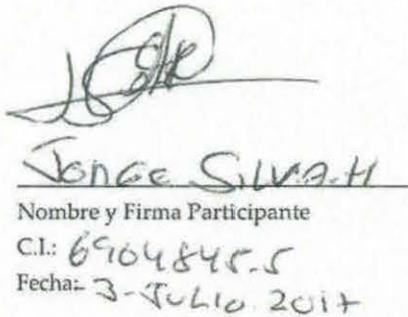 JORGE SILVA.H
Nombre y Firma Participante
C.I.: 6904845-5
Fecha: 3-JULIO 2017